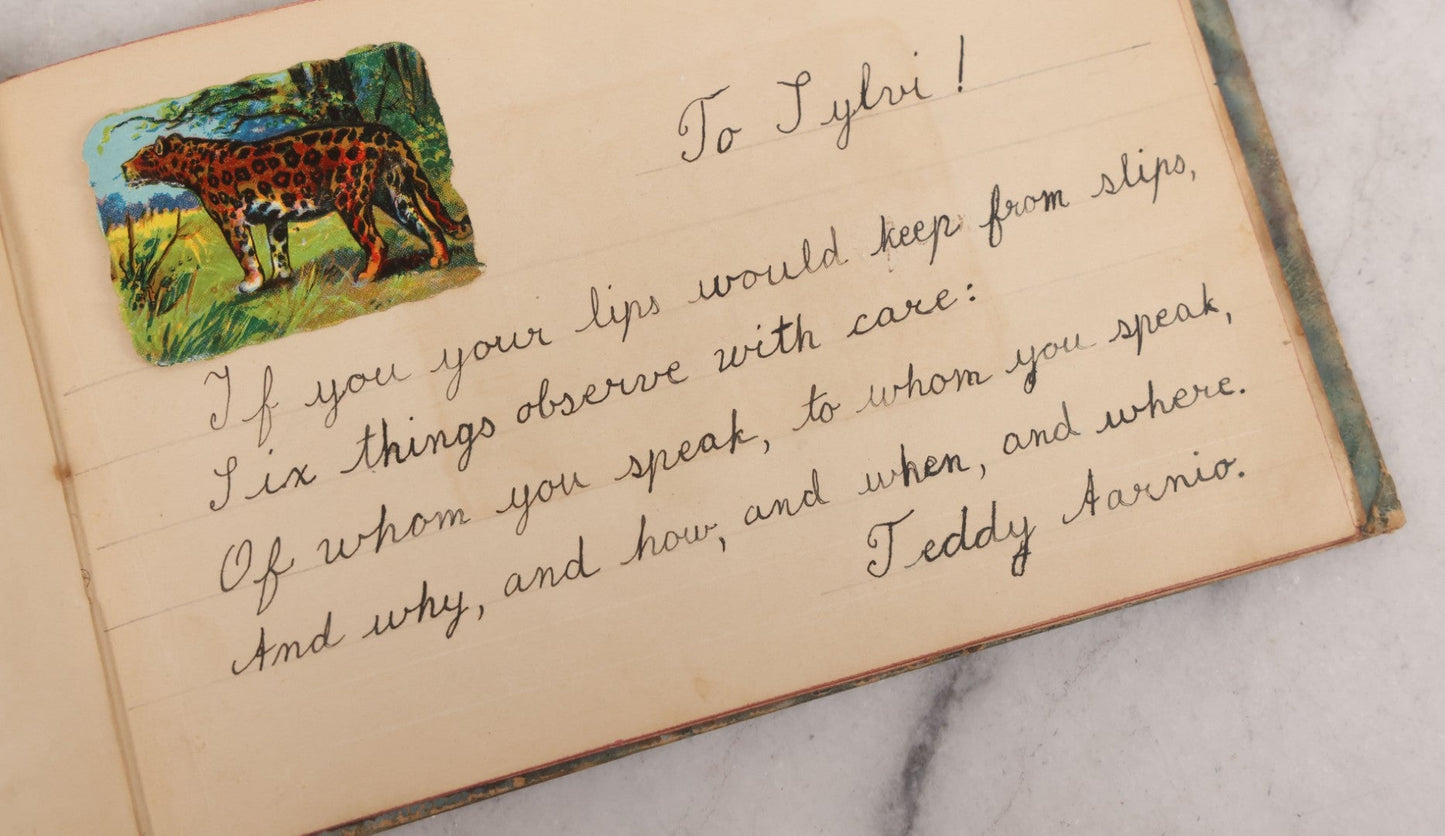 To Sylvi!
If you your lips would keep from slips,
Six things observe with care:
Of whom you speak, to whom you speak,
And why, and how, and when, and where.
Teddy Aarnio.